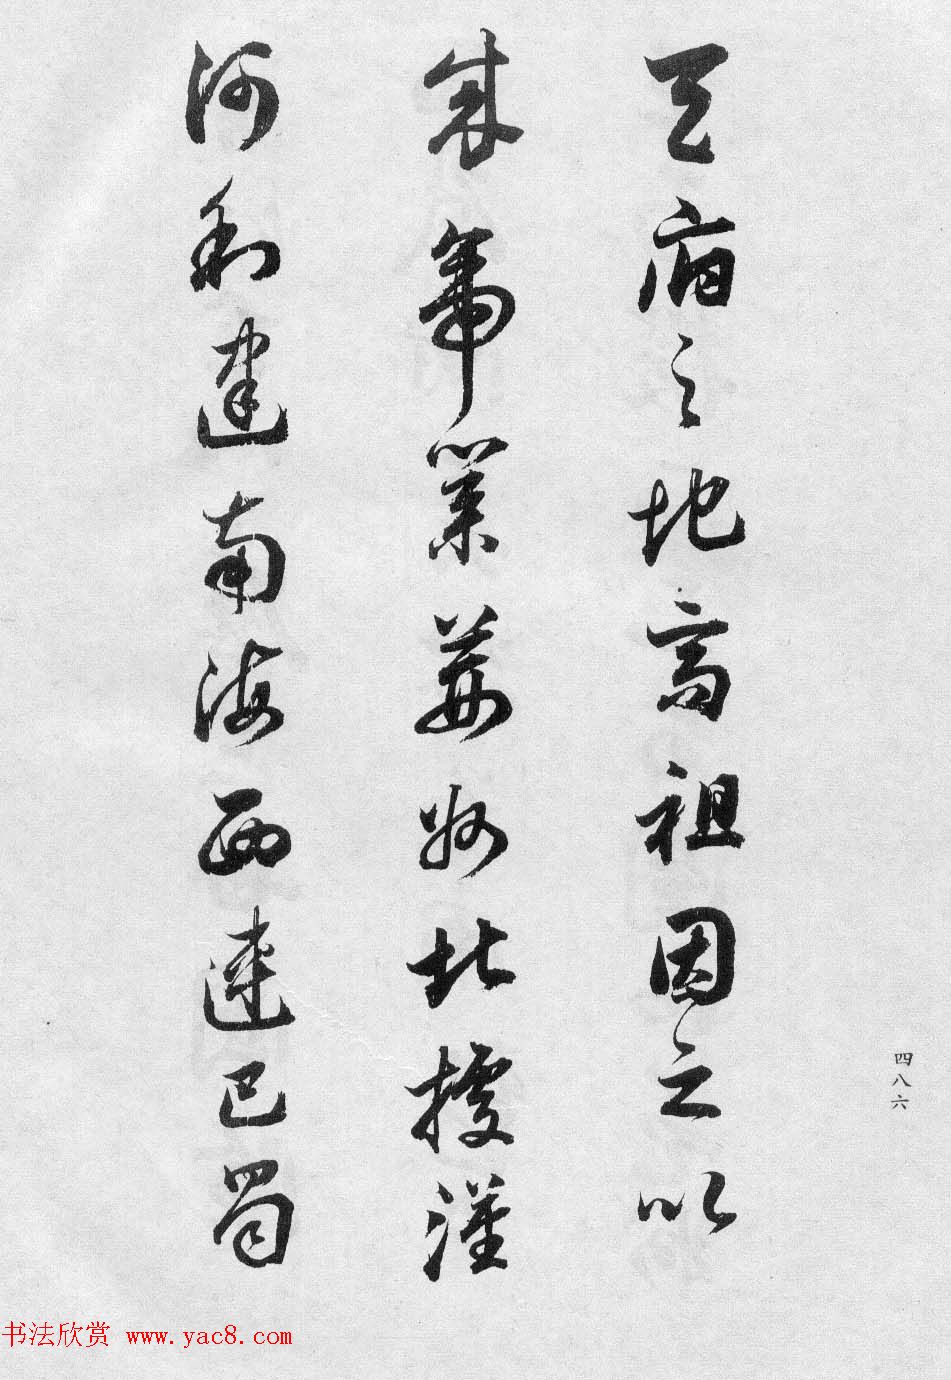 天府之地高祖因之以
成帝業荊州北據漢
沔利達南海西連巴蜀
四八六
书法欣赏 www.yac8.com